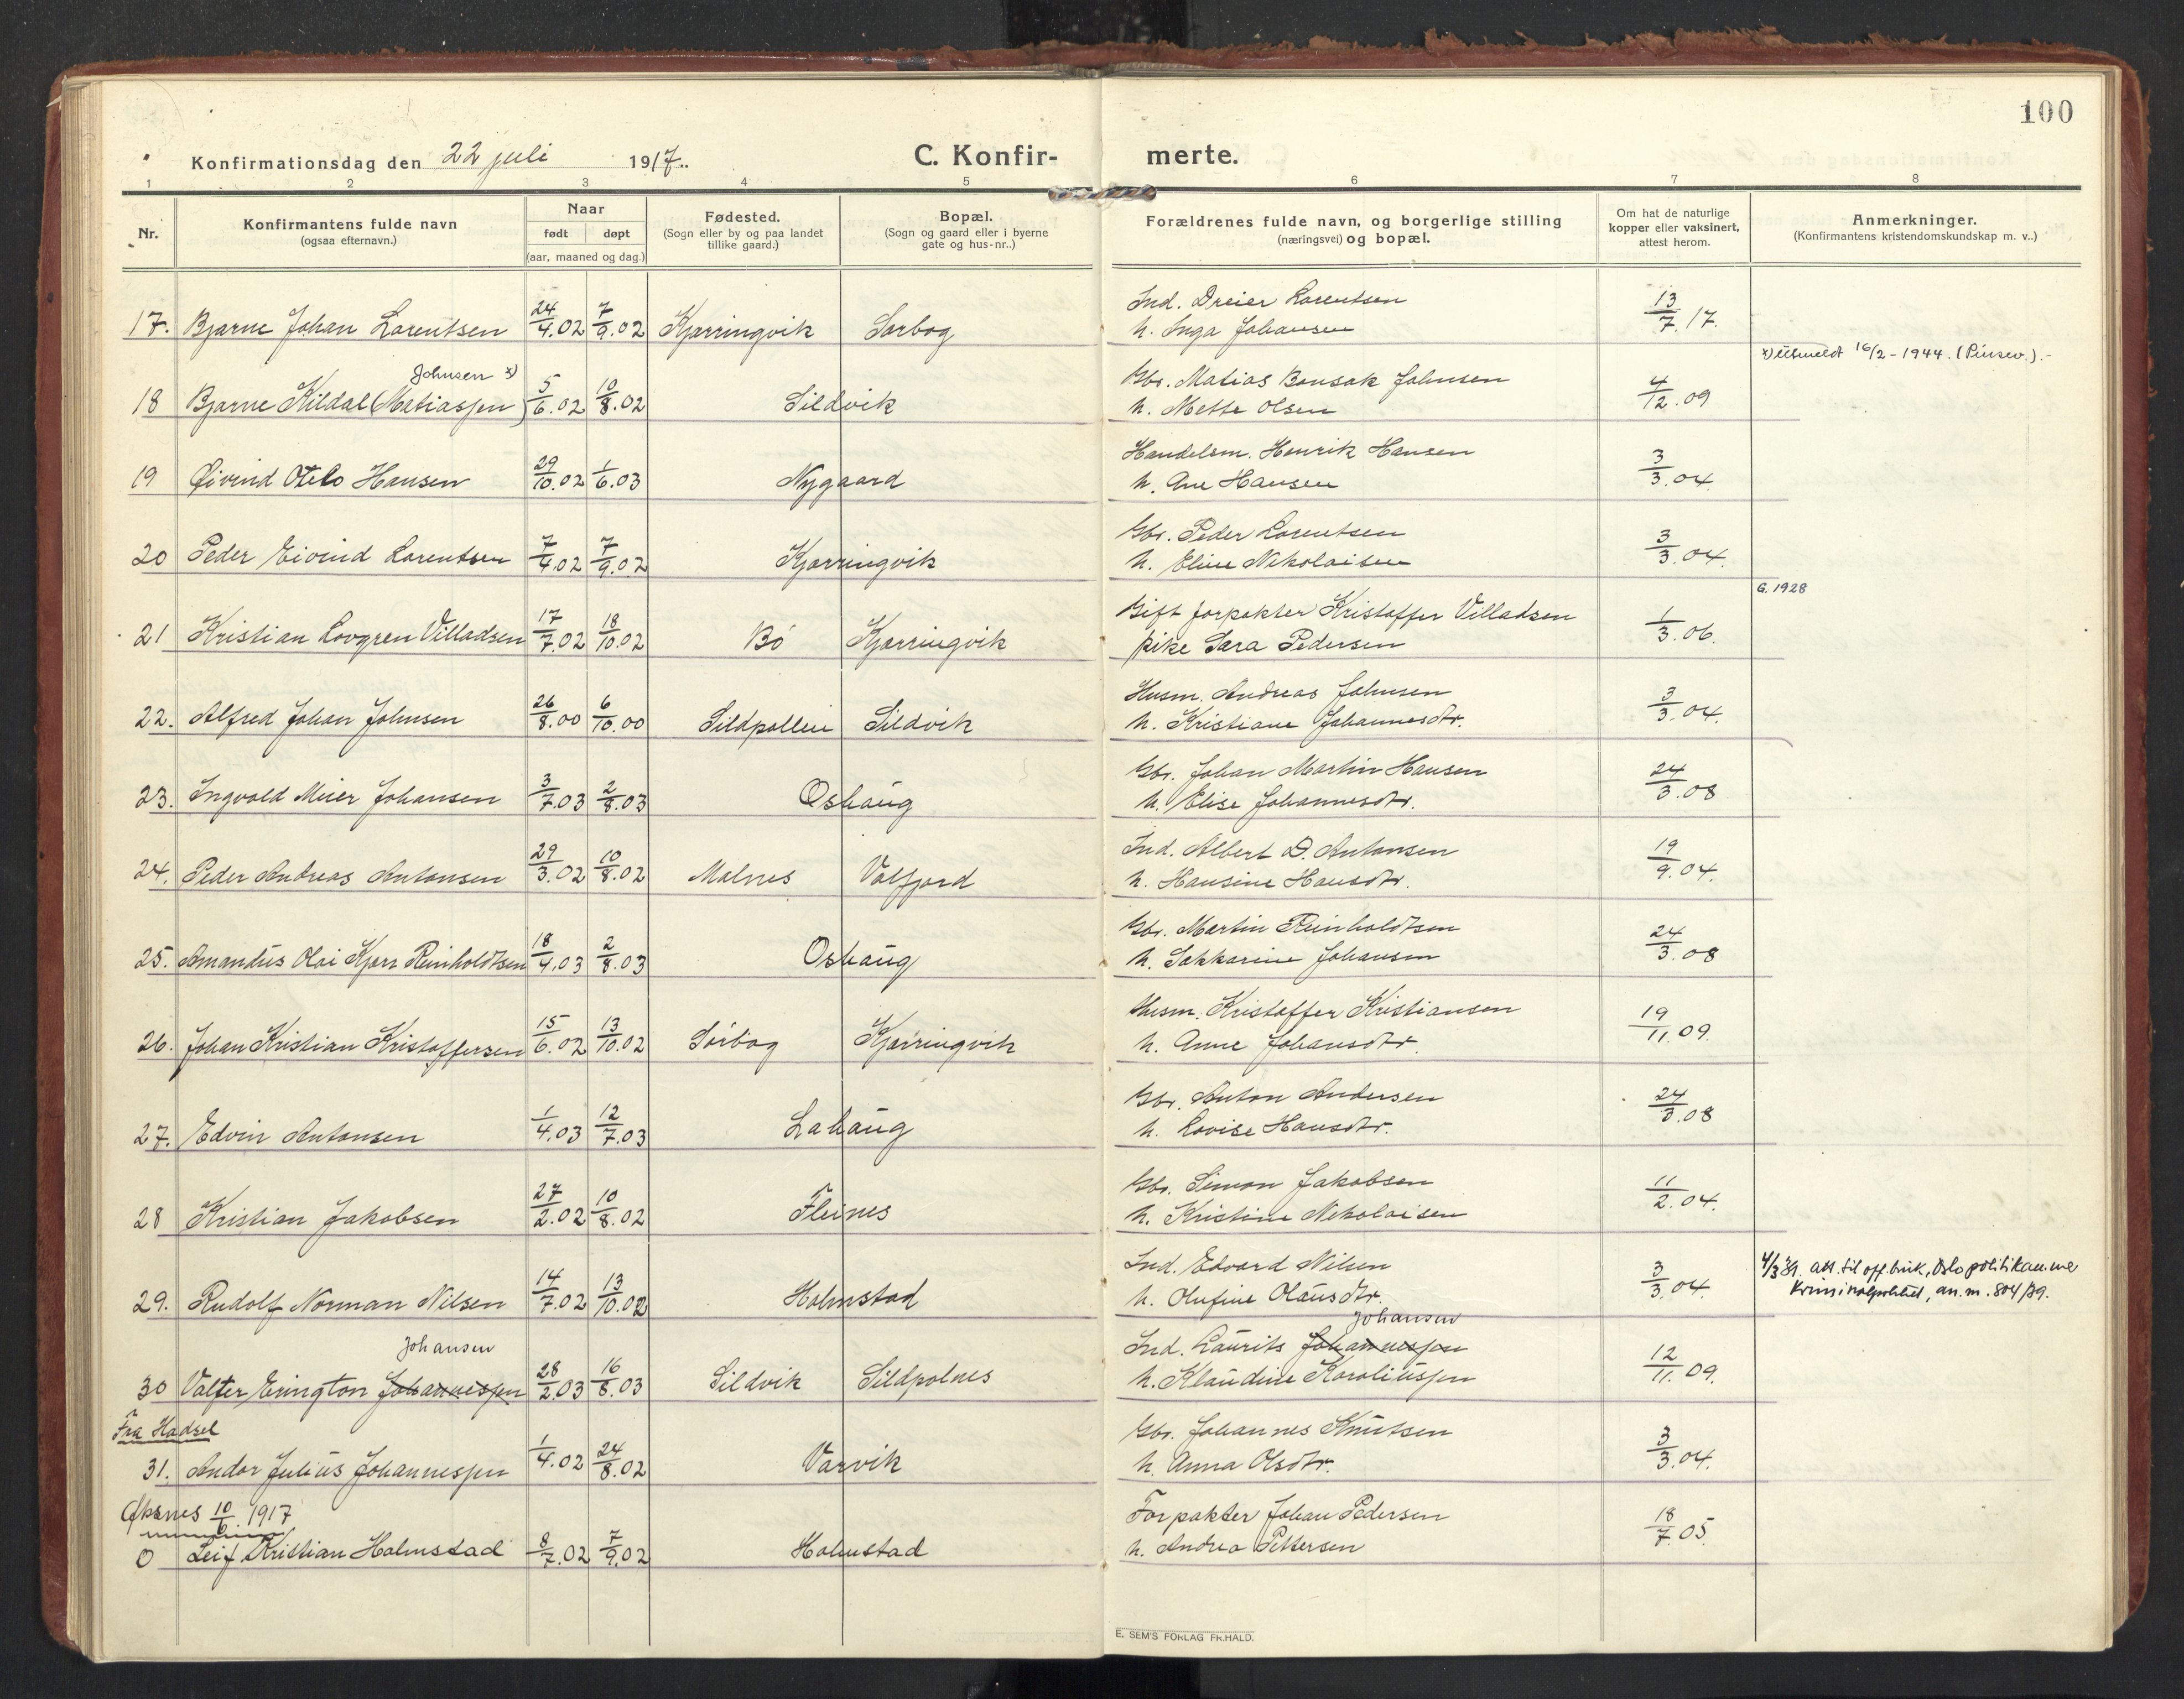 100
Konfirmationsdag den 22 juli 1917.
C. Konfirmerte.
1 2 3 4 5 6 7 8
Nr.
Konfirmantens fulde navn
(ogsaa efternavn.)
Naar
født døpt
(aar, maaned og dag.)
Fødested.
(Sogn eller by og paa landet
tillike gaard.)
Bopæl.
(Sogn og gaard eller i byerne
gate og hus-nr..)
Forældrenes fulde navn, og borgerlige stilling
(næringsvei) og bopæl.
Om hat de naturlige
kopper eller vaksinert,
attest herom.
Anmerkninger.
(Konfirmantens kristendomskundskap m. v..)
Ind. Dreier Lorentsen
17. Bjarne Johan Lorentsen 24/4.02 7/9.02 Kjærringvik Sørbog h. Inga Johansen 13/7.17.
x) utmeldt 16/2-1944. (Pinsev.).-
Johnsen x)
Gbr. Matias Bonsak Johnsen
18 Bjarne Kildal (Matiassen) 5/6.02 10/8.02 Sildvik h. Mette Olsen 4/12.09
Handelsm. Henrik Hansen
19 Øivind Otelo Hansen 29/10.02 1/6.03 Nygaard h. Ane Hansen 3/3.04.
Gbr. Peder Lorentsen
20 Peder Eivind Lorentsen 7/4.02 7/9.02 Kjærringvik h. Eline Nikolaisen 3/3.04.
G. 1928
Gift forpakter Kristoffer Villadsen
21 Kristian Lovgren Villadsen 17/7.02 18/10.02 Bö Kjærringvik pike Sara Pedersen 1/3.06.
Husm. Andreas Johnsen
22. Alfred Johan Johnsen 26/8.00 6/10.00 Sildpollen Sildvik h. Kristiane Johannesdtr. 3/3.04.
Gbr. Johan Martin Hansen
23. Ingvald Meier Johansen 3/7.03 2/8.03 Oshaug h. Elise Johannesdtr. 24/3.08
Ind. Albert D. Antonsen
24. Peder Andreas Antonsen 29/3.02 10/8.02 Malnes Valfjord h. Hansine Hansdtr. 19/9.04.
Gbr. Martin Reinholdtsen
25. Amandus Olai Kjær Reinholdtsen 18/4.03 2/8.03 Oshaug h. Sakkarine Johansen 24/3.08
Husm. Kristoffer Kristiansen
26. Johan Kristian Kristoffersen 15/6.02 13/10.02 Sörbog Kjærringvik h. Anne Johansdtr. 19/11.09.
Gbr. Anton Andersen
27. Edvin Antonsen 1/4.03 12/7.03 Lahaug h. Lovise Hansdtr. 24/3.08
Gbr. Simon Jakobsen
28 Kristian Jakobsen 27/2.02 10/8.02 Fleines h. Kristine Nikolaisen 11/2.04.
Ind. Edvard Nilsen
4/3 39. att. til off. bruk, Oslo politikam. ved
29. Rudolf Norman Nilsen 14/7.02 13/10.02 Holmstad h. Olufine Olausdtr. 3/3.04.
Kriminalpolitiet, an. m. 804/39.
Johansen
Johansen
Ind. Laurits Johannessen
30 Valter Erington Johannessen 28/2.03 16/8.03 Sildvik Sildpolnes h. Klaudine Karoliussen 12/11.09.
Fra Hadsel
Gbr. Johannes Knutsen
31. Andor Julius Johannessen 1/4.02 24/8.02 Varvik h. Anna Olsdtr. 3/3.04.
Øksnes 10/6. 1917
Forpakter Johan Pedersen
0 Leif Kristian Holmstad 8/7.02 7/9.02 Holmstad h. Andrea Pettersen 18/7.05.
E. SEM'S FORLAG FR.HALD.